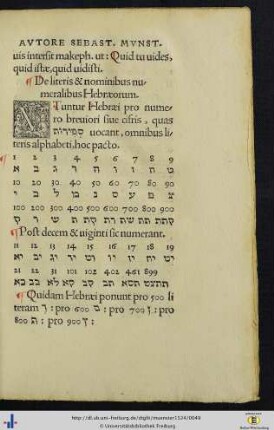 AVTORE SEBAST. MVNST.
uis intersit makeph. ut: Quid tu uides,
quid istæ, quid uidisti.
¶ De literis & nominibus nu-
meralibus Hebræorum.
Vtuntur Hebræi pro nume-
ro breuiori siue cifris, quas
ספירות uocant, omnibus li-
teris alphabeti, hoc pacto.
1 2 3 4 5 6 7 8 9
א ב ג ד ה ו ז ח ט
10 20 30 40 50 60 70 80 90
י כ ל מ נ ס ע פ צ
100 200 300 400 500 600 700 800 900
ק ר ש ת תק תר תש תת
¶ Post decem & uiginti sic numerant.
11 12 13 14 15 16 17 18 19
יא יב יג יד טו יו יז יח יט
21 22 31 101 102 402 461 899
כא כב לא קא קב תב תסא תתצט
¶ Quidam Hebræi ponunt pro 500 li
teram ך: pro 600 ם: pro 700 ן: pro
800 ף: pro 900 ץ:
http://dl.ub.uni-freiburg.de/diglit/muenster1524/0049
© Universitätsbibliothek Freiburg